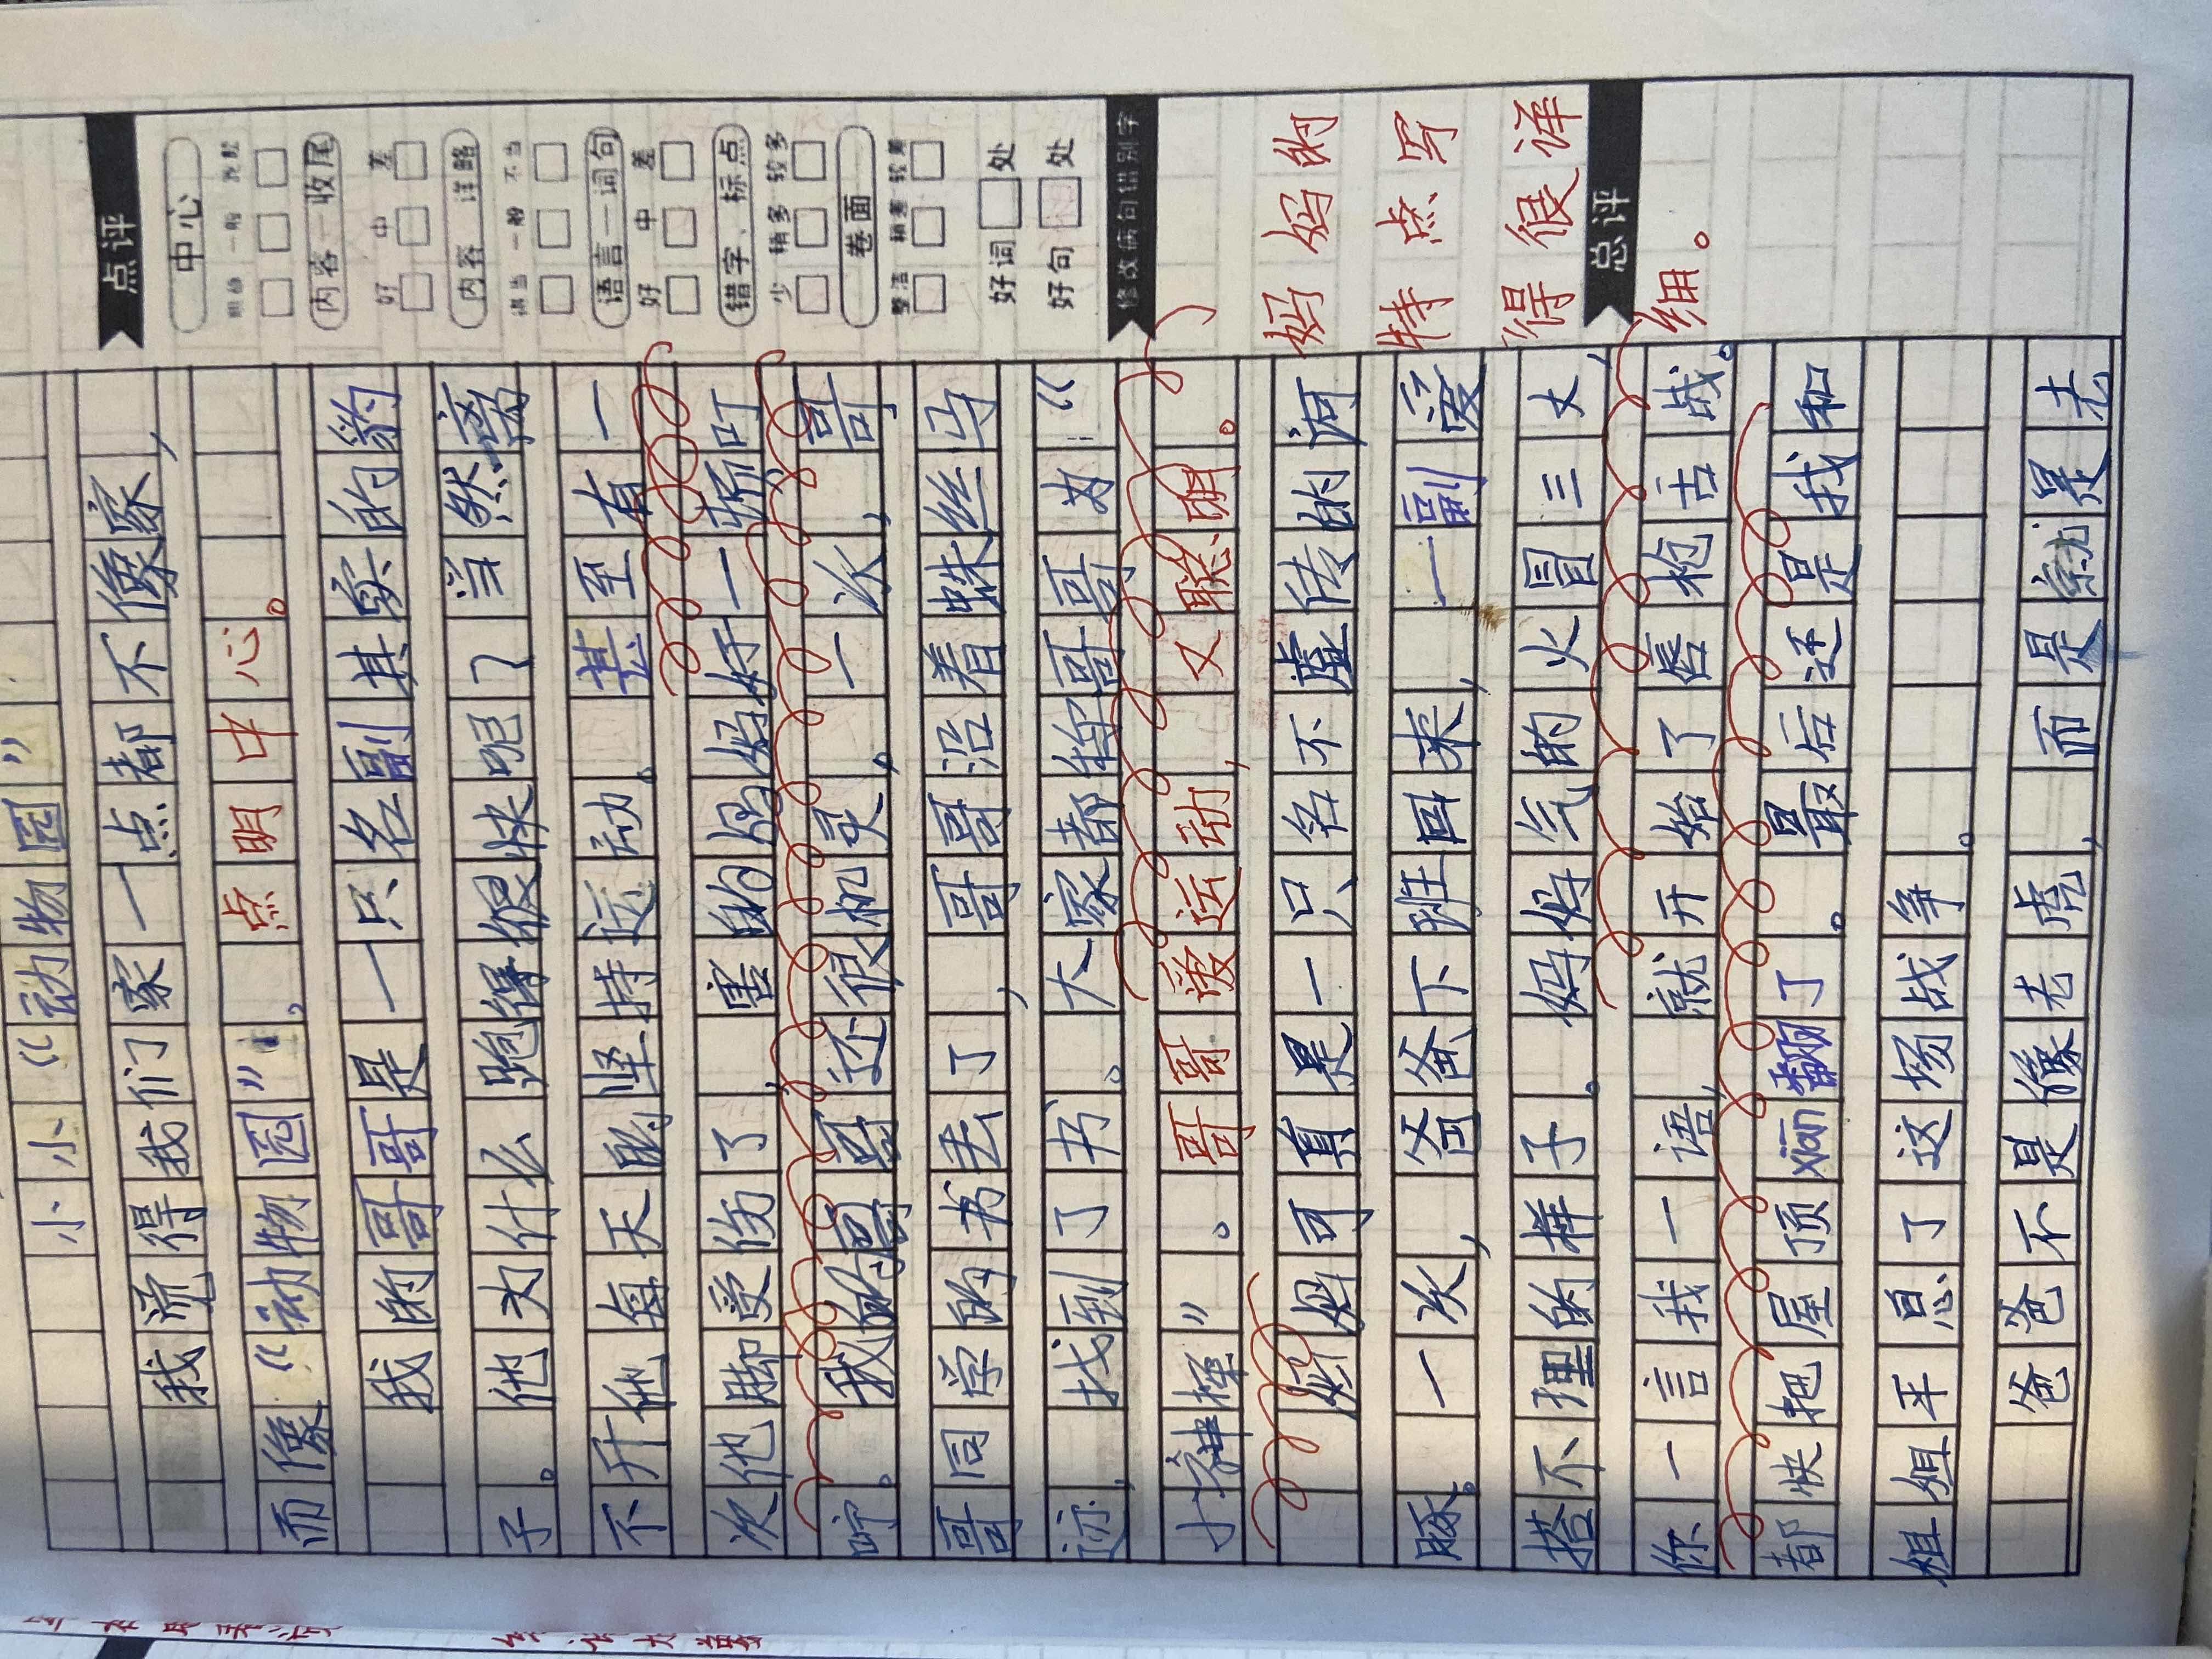 小小“动物园”
我觉得我们家一点都不像家,
而像“动物园”。 点明中心。
我的哥哥是一只名副其实的豹
子。他为什么跑得很快呢?当然离
不开他每天的坚持运动。甚至有一
次他脚受伤了,害的妈妈好一顿叮
咛。我的哥哥还很机灵。一次,哥
哥同学的书丢了,哥哥沿着蛛丝马
迹,找到了书。大家都称哥哥为“
小神探”。 哥哥爱运动,又聪明。
妈妈可真是一只名不虚传的河
豚。一次,爸爸下班回来,一副爱
搭不理的样子。妈妈气的火冒三丈,
你一言我一语,就开始了唇枪舌战。
都快把屋顶xiān翻了。最后还是我和
姐姐平息了这场战争。
爸爸不是像老虎,而是就是老
点评
中心
明确 一般 跑题
内容—收尾
好 中 差
内容 详略
得当 一般 不当
语言—词句
好 中 差
错字、标点
少 稍多 较多
卷面
整洁 稍差 较差
好词 处
好句 处
修改病句错别字
妈妈的
特点写
得很详
细。
总评